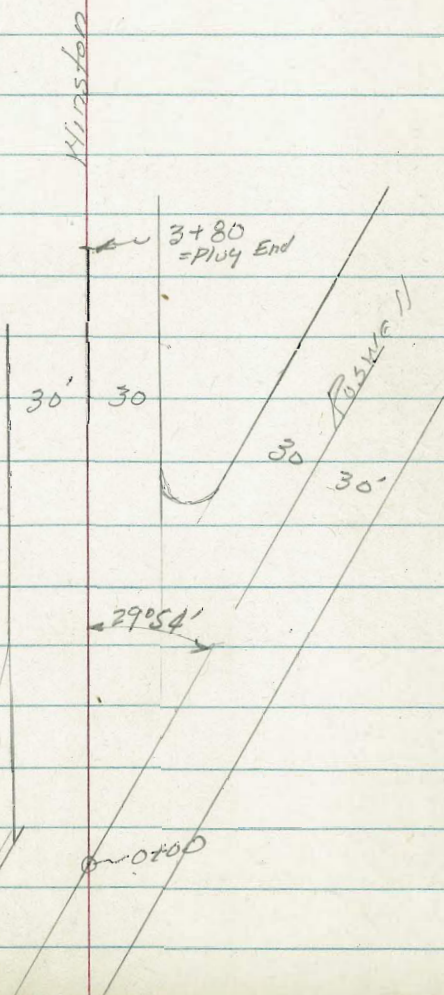 Winston
3+80
=Plug End
30' 30
Roswell
30
30'
29°54'
0+00